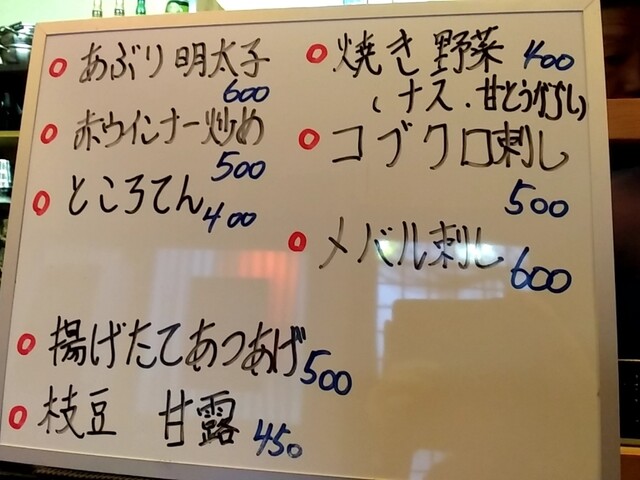 あぶり明太子
600
赤ウインナー炒め
500
ところてん 400
揚げたてあつあげ 500
枝豆 甘露 450
焼き野菜 400
(ナス・甘とうがらし)
コブクロ刺し
500
メバル刺し 600